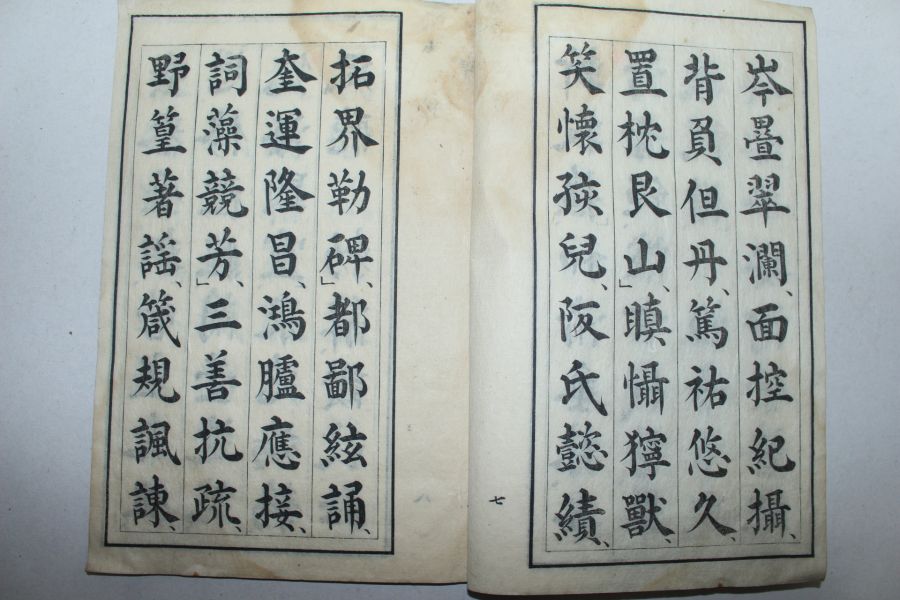 岑疊翠瀾、面控紀攝、
背負但丹、篤祐悠久、
置枕艮山」、瞋懾獰獸、
笑懷孩兒、阪氏懿績、
七
拓界勒碑」、都鄙絃誦、
奎運隆昌、鴻臚應接、
詞藻競芳」、三善抗疏、
野篁著謡、箴規諷諫、